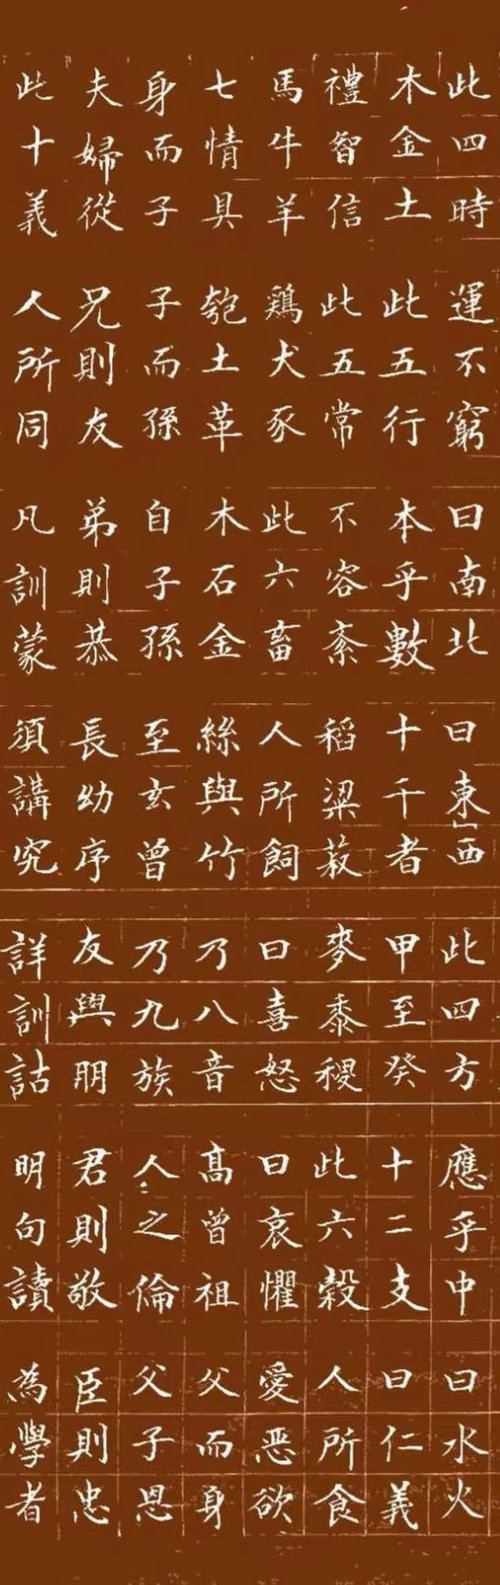 此四時運不窮曰南北曰東西此四方應乎中曰水火
木金土此五行本乎數十千者甲至癸十二支曰仁義
禮智信此五常不容紊稻粱菽麥黍稷此六穀人所食
馬牛羊鶏犬豕此六畜人所飼曰喜怒曰哀懼愛恶欲
七情具匏土革木石金絲與竹乃八音髙曾祖父而身
身而子子而孫自子孫至玄曾乃九族人之倫父子恩
夫婦從兄則友弟則恭長幼序友與朋君則敬臣則忠
此十義人所同凡訓蒙須講究詳訓詁明句讀為學者